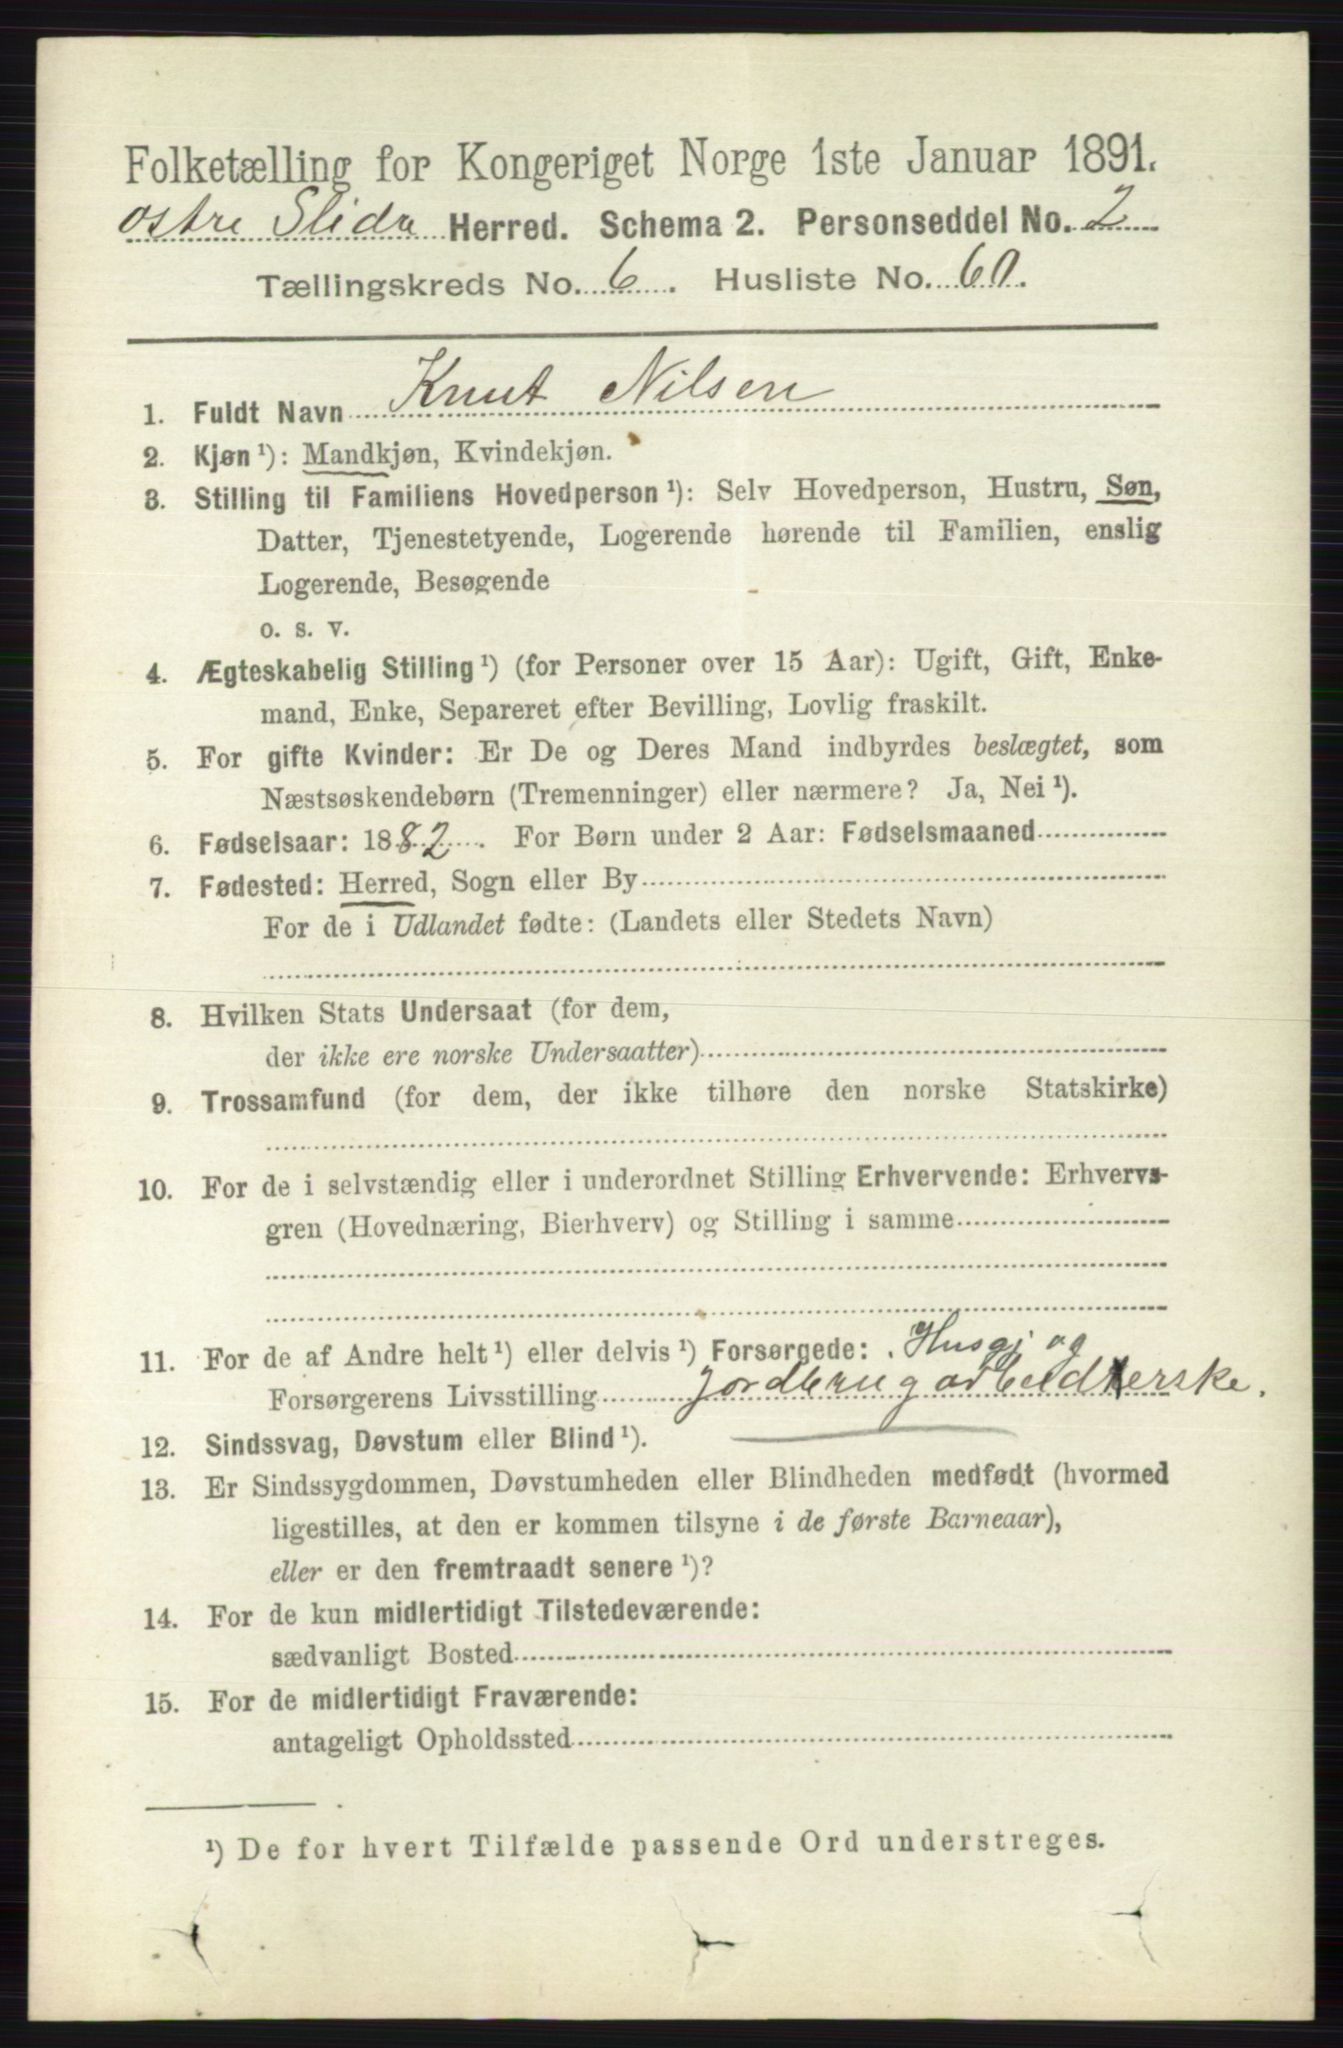 Folketælling for Kongeriget Norge 1ste Januar 1891.
Østre Slidre Herred. Schema 2. Personseddel No. 2
Tællingskreds No. 6. Husliste No. 60.
1. Fuldt Navn Knut Nilsen
2. Kjøn ¹): Mandkjøn, Kvindekjøn.
3. Stilling til Familiens Hovedperson ¹): Selv Hovedperson, Hustru, Søn,
Datter, Tjenestetyende, Logerende hørende til Familien, enslig
Logerende, Besøgende
o. s. v.
4. Ægteskabelig Stilling ¹) (for Personer over 15 Aar): Ugift, Gift, Enke-
mand, Enke, Separeret efter Bevilling, Lovlig fraskilt.
5. For gifte Kvinder: Er De og Deres Mand indbyrdes beslægtet, som
Næstsøskendebørn (Tremenninger) eller nærmere? Ja, Nei ¹).
6. Fødselsaar: 1882. For Børn under 2 Aar: Fødselsmaaned
7. Fødested: Herred, Sogn eller By
For de i Udlandet fødte: (Landets eller Stedets Navn)
8. Hvilken Stats Undersaat (for dem,
der ikke ere norske Undersaatter)
9. Trossamfund (for dem, der ikke tilhøre den norske Statskirke)
10. For de i selvstændig eller i underordnet Stilling Erhvervende: Erhvervs-
gren (Hovednæring, Bierhverv) og Stilling i samme
11. For de af Andre helt ¹) eller delvis ¹) Forsørgede: Husgj og
Forsørgerens Livsstilling jordbrugarbeiderske.
12. Sindssvag, Døvstum eller Blind ¹).
13. Er Sindssygdommen, Døvstumheden eller Blindheden medfødt (hvormed
ligestilles, at den er kommen tilsyne i de første Barneaar),
eller er den fremtraadt senere ¹)?
14. For de kun midlertidigt Tilstedeværende:
sædvanligt Bosted
15. For de midlertidigt Fraværende:
antageligt Opholdssted
¹) De for hvert Tilfælde passende Ord understreges.